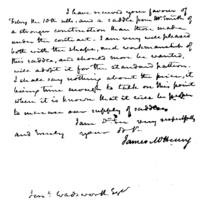 I have received your favour of
Feby the 10th ulto, and a saddle from Mr Smith of
a stronger construction than those made
under the contract. I am very well pleased
both with the shape, and workmanship of
this saddle, and should more be wanted,
will adopt it for the standard pattern.
I shall say nothing about the price, it
being time enough to talk on this point
when it is known that it will be
to increase our supply of saddles.
I am Sir very respectfully
and truly your
James McHenry
Jere'h Wadsworth Esqr